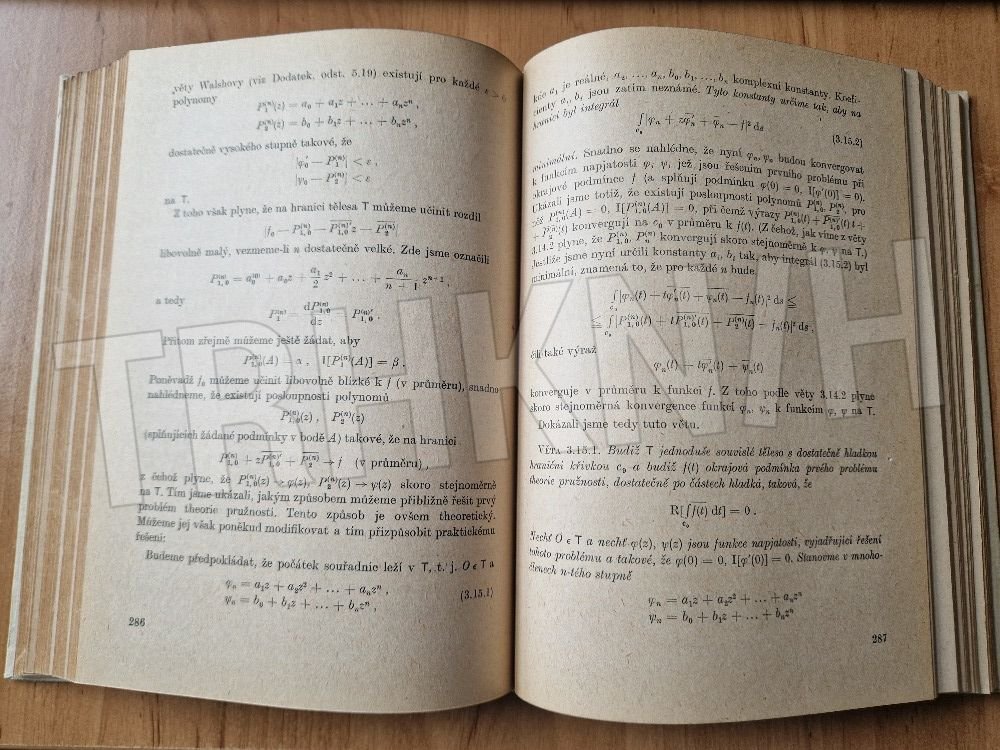 věty Walshovy (viz Dodatek, odst. 5.19) existují pro každé ε > 0
polynomy
P₁⁽ⁿ⁾(z) = a₀ + a₁z + ... + aₙzⁿ ,
P₂⁽ⁿ⁾(z) = b₀ + b₁z + ... + bₙzⁿ ,
dostatečně vysokého stupně takové, že
|φ′₀ — P₁⁽ⁿ⁾| < ε ,
|ψ₀ — P₂⁽ⁿ⁾| < ε
na T.
Z toho však plyne, že na hranici tělesa T můžeme učinit rozdíl
libovolně malý, vezmeme-li n dostatečně velké. Zde jsme označili
a tedy
Přitom zřejmě můžeme ještě žádat, aby
P₁,₀⁽ⁿ⁾(A) = α , I[P₁⁽ⁿ⁾(A)] = β .
Poněvadž f₀ můžeme učinit libovolně blízké k f (v průměru), snadno
nahlédneme, že existují posloupnosti polynomů
P₁,₀⁽ⁿ⁾(z) , P₂⁽ⁿ⁾(z)
(splňujících žádané podmínky v bodě A) takové, že na hranici
(v průměru) ,
z čehož plyne, že P₁,₀⁽ⁿ⁾(z) → φ(z), P₂⁽ⁿ⁾(z) → ψ(z) skoro stejnoměrně
na T. Tím jsme ukázali, jakým způsobem můžeme přibližně řešit prvý
problém theorie pružnosti. Tento způsob je ovšem theoretický.
Můžeme jej však poněkud modifikovat a tím přizpůsobit praktickému
řešení:
Budeme předpokládat, že počátek souřadnic leží v T, t. j. O ϵ T a
φₙ = a₁z + a₂z² + ... + aₙzⁿ ,
ψₙ = b₀ + b₁z + ... + bₙzⁿ , (3.15.1)
286
kde a₁ je reálné, a₂, ..., aₙ, b₀, b₁, ..., bₙ komplexní konstanty. Koefi-
cienty aᵢ, bᵢ jsou zatím neznámé. Tyto konstanty určíme tak, aby na
hranici byl integrál
(3.15.2)
minimální. Snadno se nahlédne, že nyní φₙ, ψₙ budou konvergovat
k funkcím napjatosti φ, ψ, jež jsou řešením prvního problému při
okrajové podmínce f (a splňují podmínku φ(0) = 0, I[φ′(0)] = 0).
Ukázali jsme totiž, že existují posloupnosti polynomů P₁,₀⁽ⁿ⁾, P₂⁽ⁿ⁾, pro
něž P₁,₀⁽ⁿ⁾(A) = 0, I[P₁,₀⁽ⁿ⁾′(A)] = 0, při čemž výrazy
konvergují na c₀ v průměru k f(t). (Z čehož, jak víme z věty
3.14.2 plyne, že konvergují skoro stejnoměrně k φ, ψ na T.)
Jestliže jsme nyní určili konstanty aᵢ, bᵢ tak, aby integrál (3.15.2) byl
minimální, znamená to, že pro každé n bude
čili také výraz
konverguje v průměru k funkci f. Z toho podle věty 3.14.2 plyne
skoro stejnoměrná konvergence funkcí φₙ, ψₙ k funkcím φ, ψ na T.
Dokázali jsme tedy tuto větu.
VĚTA 3.15.1. Budiž T jednoduše souvislé těleso s dostatečně hladkou
hraniční křivkou c₀ a budiž f(t) okrajová podmínka prvého problému
theorie pružnosti, dostatečně po částech hladká, taková, že
Nechť O ϵ T a nechť φ(z), ψ(z) jsou funkce napjatosti, vyjadřující řešení
tohoto problému a takové, že φ(0) = 0, I[φ′(0)] = 0. Stanovme v mnoho-
členech n-tého stupně
φₙ = a₁z + a₂z² + ... + aₙzⁿ
ψₙ = b₀ + b₁z + ... + bₙzⁿ
287